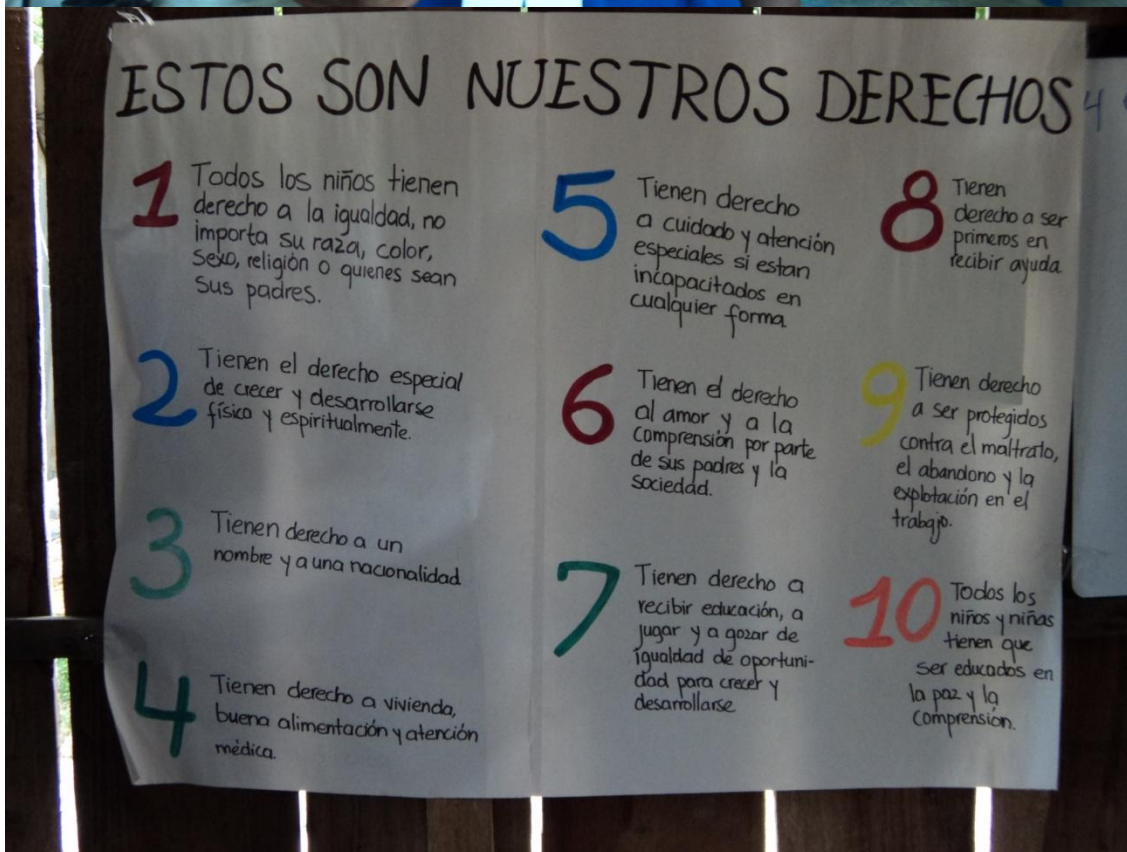 ESTOS SON NUESTROS DERECHOS
1 Todos los niños tienen
derecho a la igualdad, no
importa su raza, color,
sexo, religión o quienes sean
sus padres.
2 Tienen el derecho especial
de crecer y desarrollarse
físico y espiritualmente.
3 Tienen derecho a un
nombre y a una nacionalidad
4 Tienen derecho a vivienda,
buena alimentación y atención
médica.
5 Tienen derecho
a cuidado y atención
especiales si estan
incapacitados en
cualquier forma.
6 Tienen el derecho
al amor y a la
comprensión por parte
de sus padres y la
sociedad.
7 Tienen derecho a
recibir educación, a
jugar y a gozar de
igualdad de oportuni-
dad para crecer y
desarrollarse
8 Tienen
derecho a ser
primeros en
recibir ayuda.
9 Tienen derecho
a ser protegidos
contra el maltrato,
el abandono y la
explotación en el
trabajo.
10 Todos los
niños y niñas
tienen que
ser educados en
la paz y la
comprensión.
4